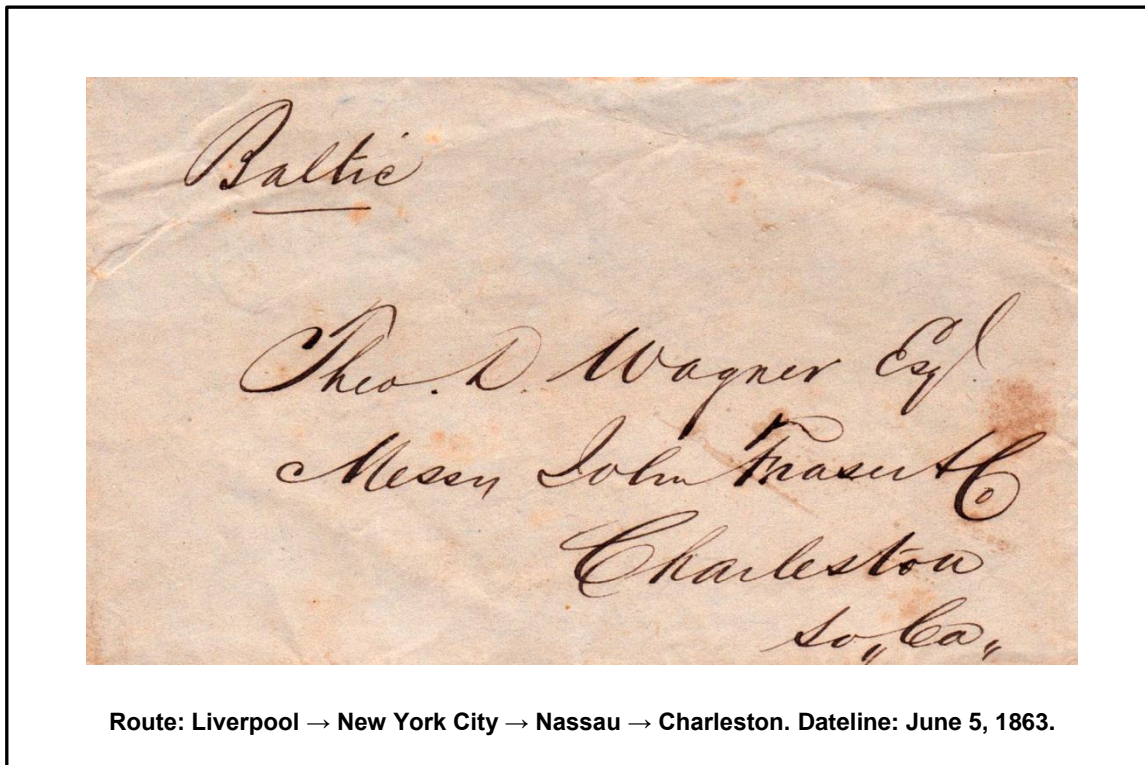 Baltic
Theo. D. Wagner Esq
Messrs John Fraser & Co
Charleston
So,, Ca,,
Route: Liverpool → New York City → Nassau → Charleston. Dateline: June 5, 1863.